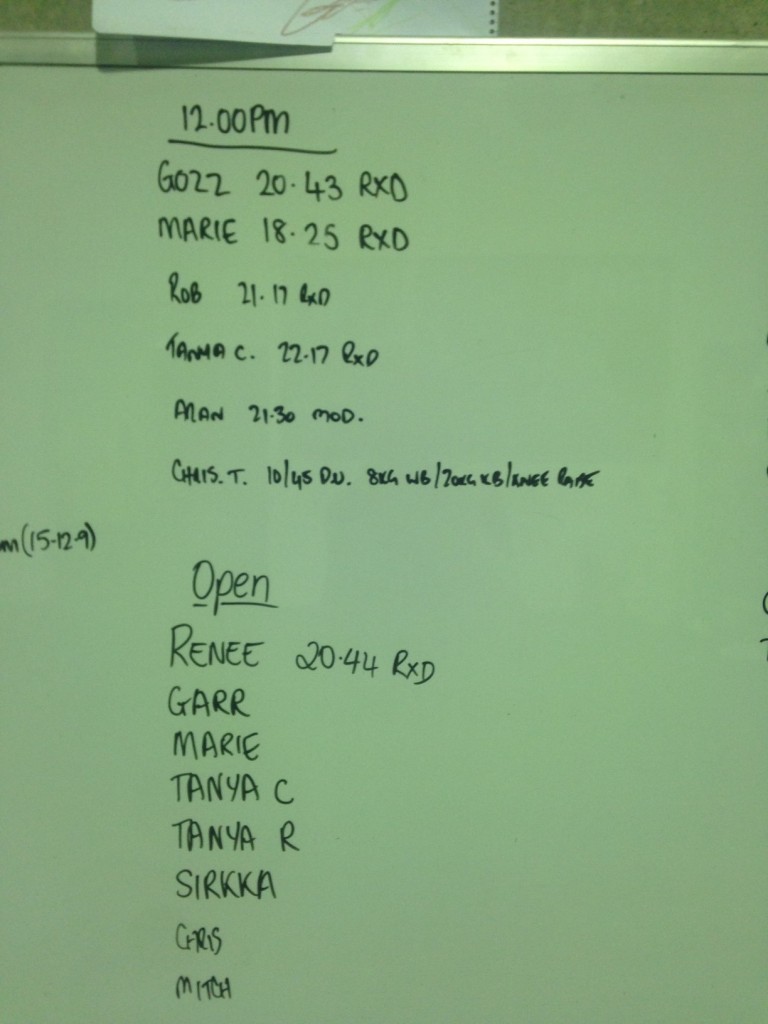 12.00PM
GOZZ 20.43 RXD
MARIE 18.25 RXD
ROB 21.17 RXD
TANYA C. 22.17 RXD
ALAN 21.30 MOD.
CHRIS. T. 10/45 D.U. 8KG WB/20KG KB/KNEE RAISE
m(15-12-9)
Open
RENEE 20.44 RXD
GARR
MARIE
TANYA C
TANYA R
SIRKKA
CHRIS
MITCH